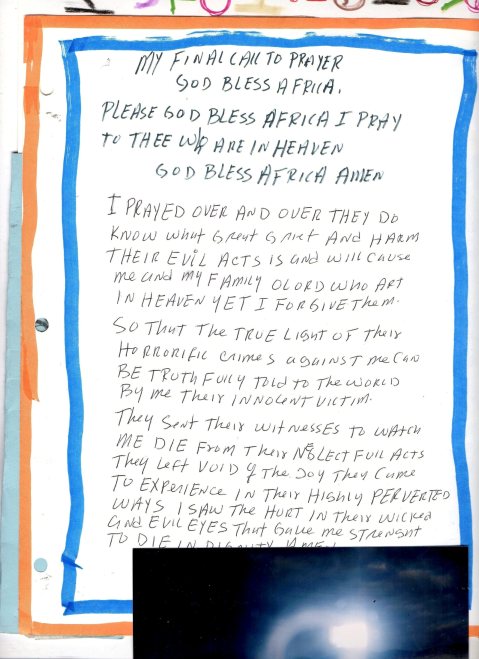 MY FINAL CALL TO PRAYER
GOD BLESS AFRICA.
PLEASE GOD BLESS AFRICA I PRAY
TO THEE WHO ARE IN HEAVEN
GOD BLESS AFRICA AMEN
I PRAYED OVER AND OVER THEY DO
KNOW what Great Grief AND HARM
THEIR EVIL ACTS IS and will CAUSE
me and MY FAMILY O LORD WHO ART
IN HEAVEN YET I FORGIVE Them.
SO That The TRUE Light OF Their
HORRORIFIC crimes against me Can
BE TRUTHFULLY Told to The WORLD
By me Their INNOCENT VICTIM.
They Sent Their WITNESSES TO WATCH
ME DIE From Their NEGLECTFULL ACTS
They Left VOID of The JOY They Came
TO EXPERIENCE IN Their HIGHLY PERVERTED
WAYS I SAW The HURT IN Their WICKED
and EVIL EYES That Gave me STRENGHT
TO DIE IN DIGNITY